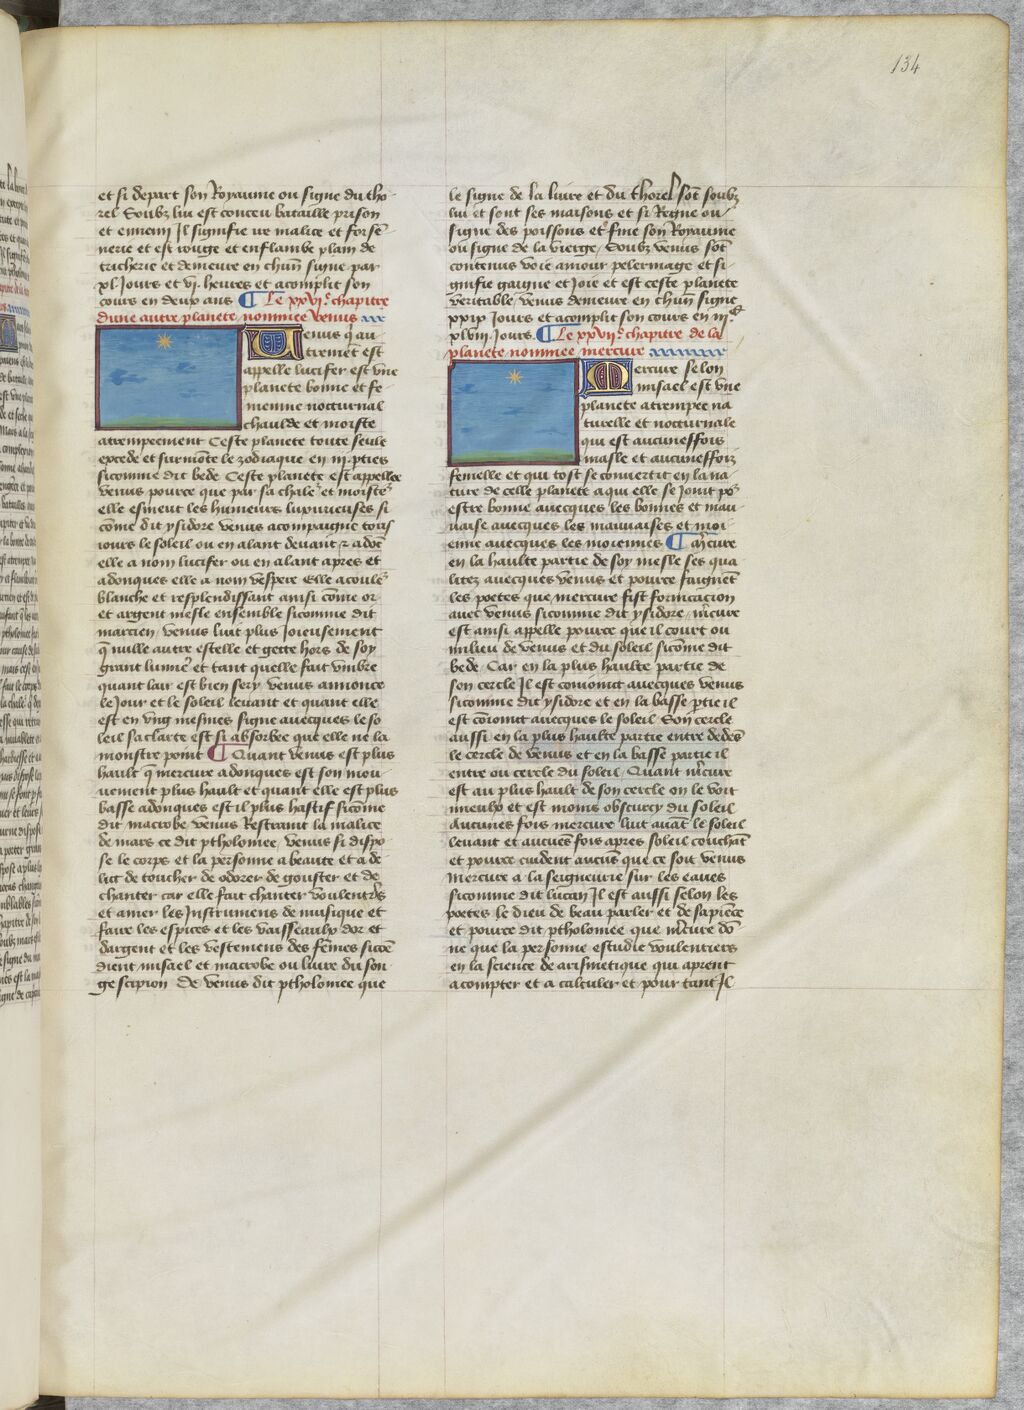 134
et si depart son Royaume ou signe du tho-
rel Soubz lui est conceu bataille prison
et ennemi Il signifie ire malice et forse-
nerie et est rouge et enflambe plain de
tricherie et demeure en chũn signe par
xl Jours et vi. heures et acomplit son
cours en deux ans ¶ Le xxvi.e chapitre
dune autre planete nommee venus
Venus q̃ au-
tremẽt est
appelle lucifer est vne
planete bonne et fe-
menine nocturnal
chaulde et moiste
attrempeement Ceste planete toute seule
excede et surmõte le zodiaque en iij. pties
sicomme dit bede Ceste planete est appellee
venus pource que par sa chalr̃ et moistr̃
elle esmeut les humeurs luxurieuses si
cõme dit ysidore venus acompaigne tous
iours le soleil ou en alant deuant ⁊ adõc
elle a nom lucifer ou en alant apres et
adonques elle a nom vespere Elle a coulr̃
blanche et resplendissant ainsi cõme or
et argent mesle ensemble sicomme dit
marcien, venus luit plus Joieusement
q̃ nulle autre estelle et gette hors de soy
grant lumiẽ et tant quelle fait vmbre
quant lair est bien sery venus annonce
le Jour et le soleil leuant et quant elle
est en vng mesmes signe auecques le so
leil sa clarte est si absorbee que elle ne la
monstre point ¶ Quant venus est plus
hault q̃ mercure adonques est son mou-
uement plus hault et quant elle est plus
basse adonques est il plus hastif sicõme
dit macrobe venus Restraint la malice
de mars ce dit ptholomee venus si dispo
se le corps et la personne a beaute et a de-
lit de toucher de odorer de gouster et de
chanter car elle fait chanter voulentr̃s
et amer les Instrumens de musique et
faire les espices et les vaisseaulx dor et
dargent et les vestemens des fẽmes sicõe
dient misael et macrobe ou liure du son
ge scipion De venus dit ptholomee que
le signe de la liure et du thorel sõt soubz
lui et sont ses maisons et si Regne ou
signe des poissons et fine son Royaume
ou signe de la vierge, Soubz venus sõt
contenus voie amour pelermage et si-
gnifie gaigne et Joie et est ceste planete
veritable venus demeure en chũn signe
xxix Jours et acomplit son cours en iij.c
xlviij Jours. ¶ Le xxvii.e chapitre de la
planete nommee mercure
Mercure selon
misael est vne
planete atrempee na
turelle et nocturnale
qui est aucuneffois
masle et aucuneffois
femelle et qui tost se conuertit en la na
ture de celle planete a qui elle se Joint põ
estre bonne auecques les bonnes et mau-
uaise auecques les mauuaises et moi-
enne auecques les moiennes ¶ Mr̃cure
en la haulte partie de soy mesle ses qua
litez auecques venus et pource faignẽt
les poetes que mercure fist fornicacion
auec venus sicomme dit ysidore, mr̃cure
est ainsi appelle pource que il court ou
milieu de venus et du soleil sicõme dit
bede Car en la plus haulte partie de
son cercle Il est conioinct auecques venus
sicomme dit ysidore et en la basse ptie il
est cõioinct auecques le soleil Son cercle
aussi en la plus haulte partie entre dedẽs
le cercle de venus et en la basse partie il
entre ou cercle du soleil Quant mr̃cure
est au plus hault de son cercle on le voit
mieulx et est moins obscurcy du soleil
Aucunes fois mercure luit auãt le soleil
leuant et aucuẽs fois apres soleil couchãt
et pource cuident aucũs que ce soit venus
Mercure a la seigneurie sur les eaues
sicomme dit lucan Il est aussi selon les
poetes le dieu de beau parler et de sapiẽce
et pource dit ptholomee que mr̃cure dõ-
ne que la personne estudie voulentiers
en la science de arismetique qui aprent
a compter et a calculer et pour tant Il